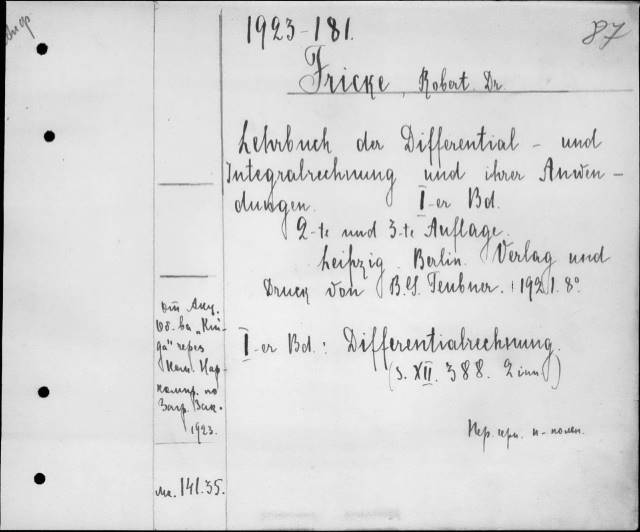 1923-181.
87
Fricke, Robert Dr.
Lehrbuch der Differential - und
Integralrechnung und ihrer Anwen-
dungen. I-er Bd.
2-te und 3-te Auflage.
Leipzig. Berlin. Verlag und
Druck von B.G. Teubner. 1921. 8°.
I-er Bd.: Differentialrechnung.
(S. XII. 388. 2 inn.)
От Акц.
Об-ва „Кни-
га" через
Ком. Нар-
комир. по
Загр. Зак.
1923.
Мк. 141.35.